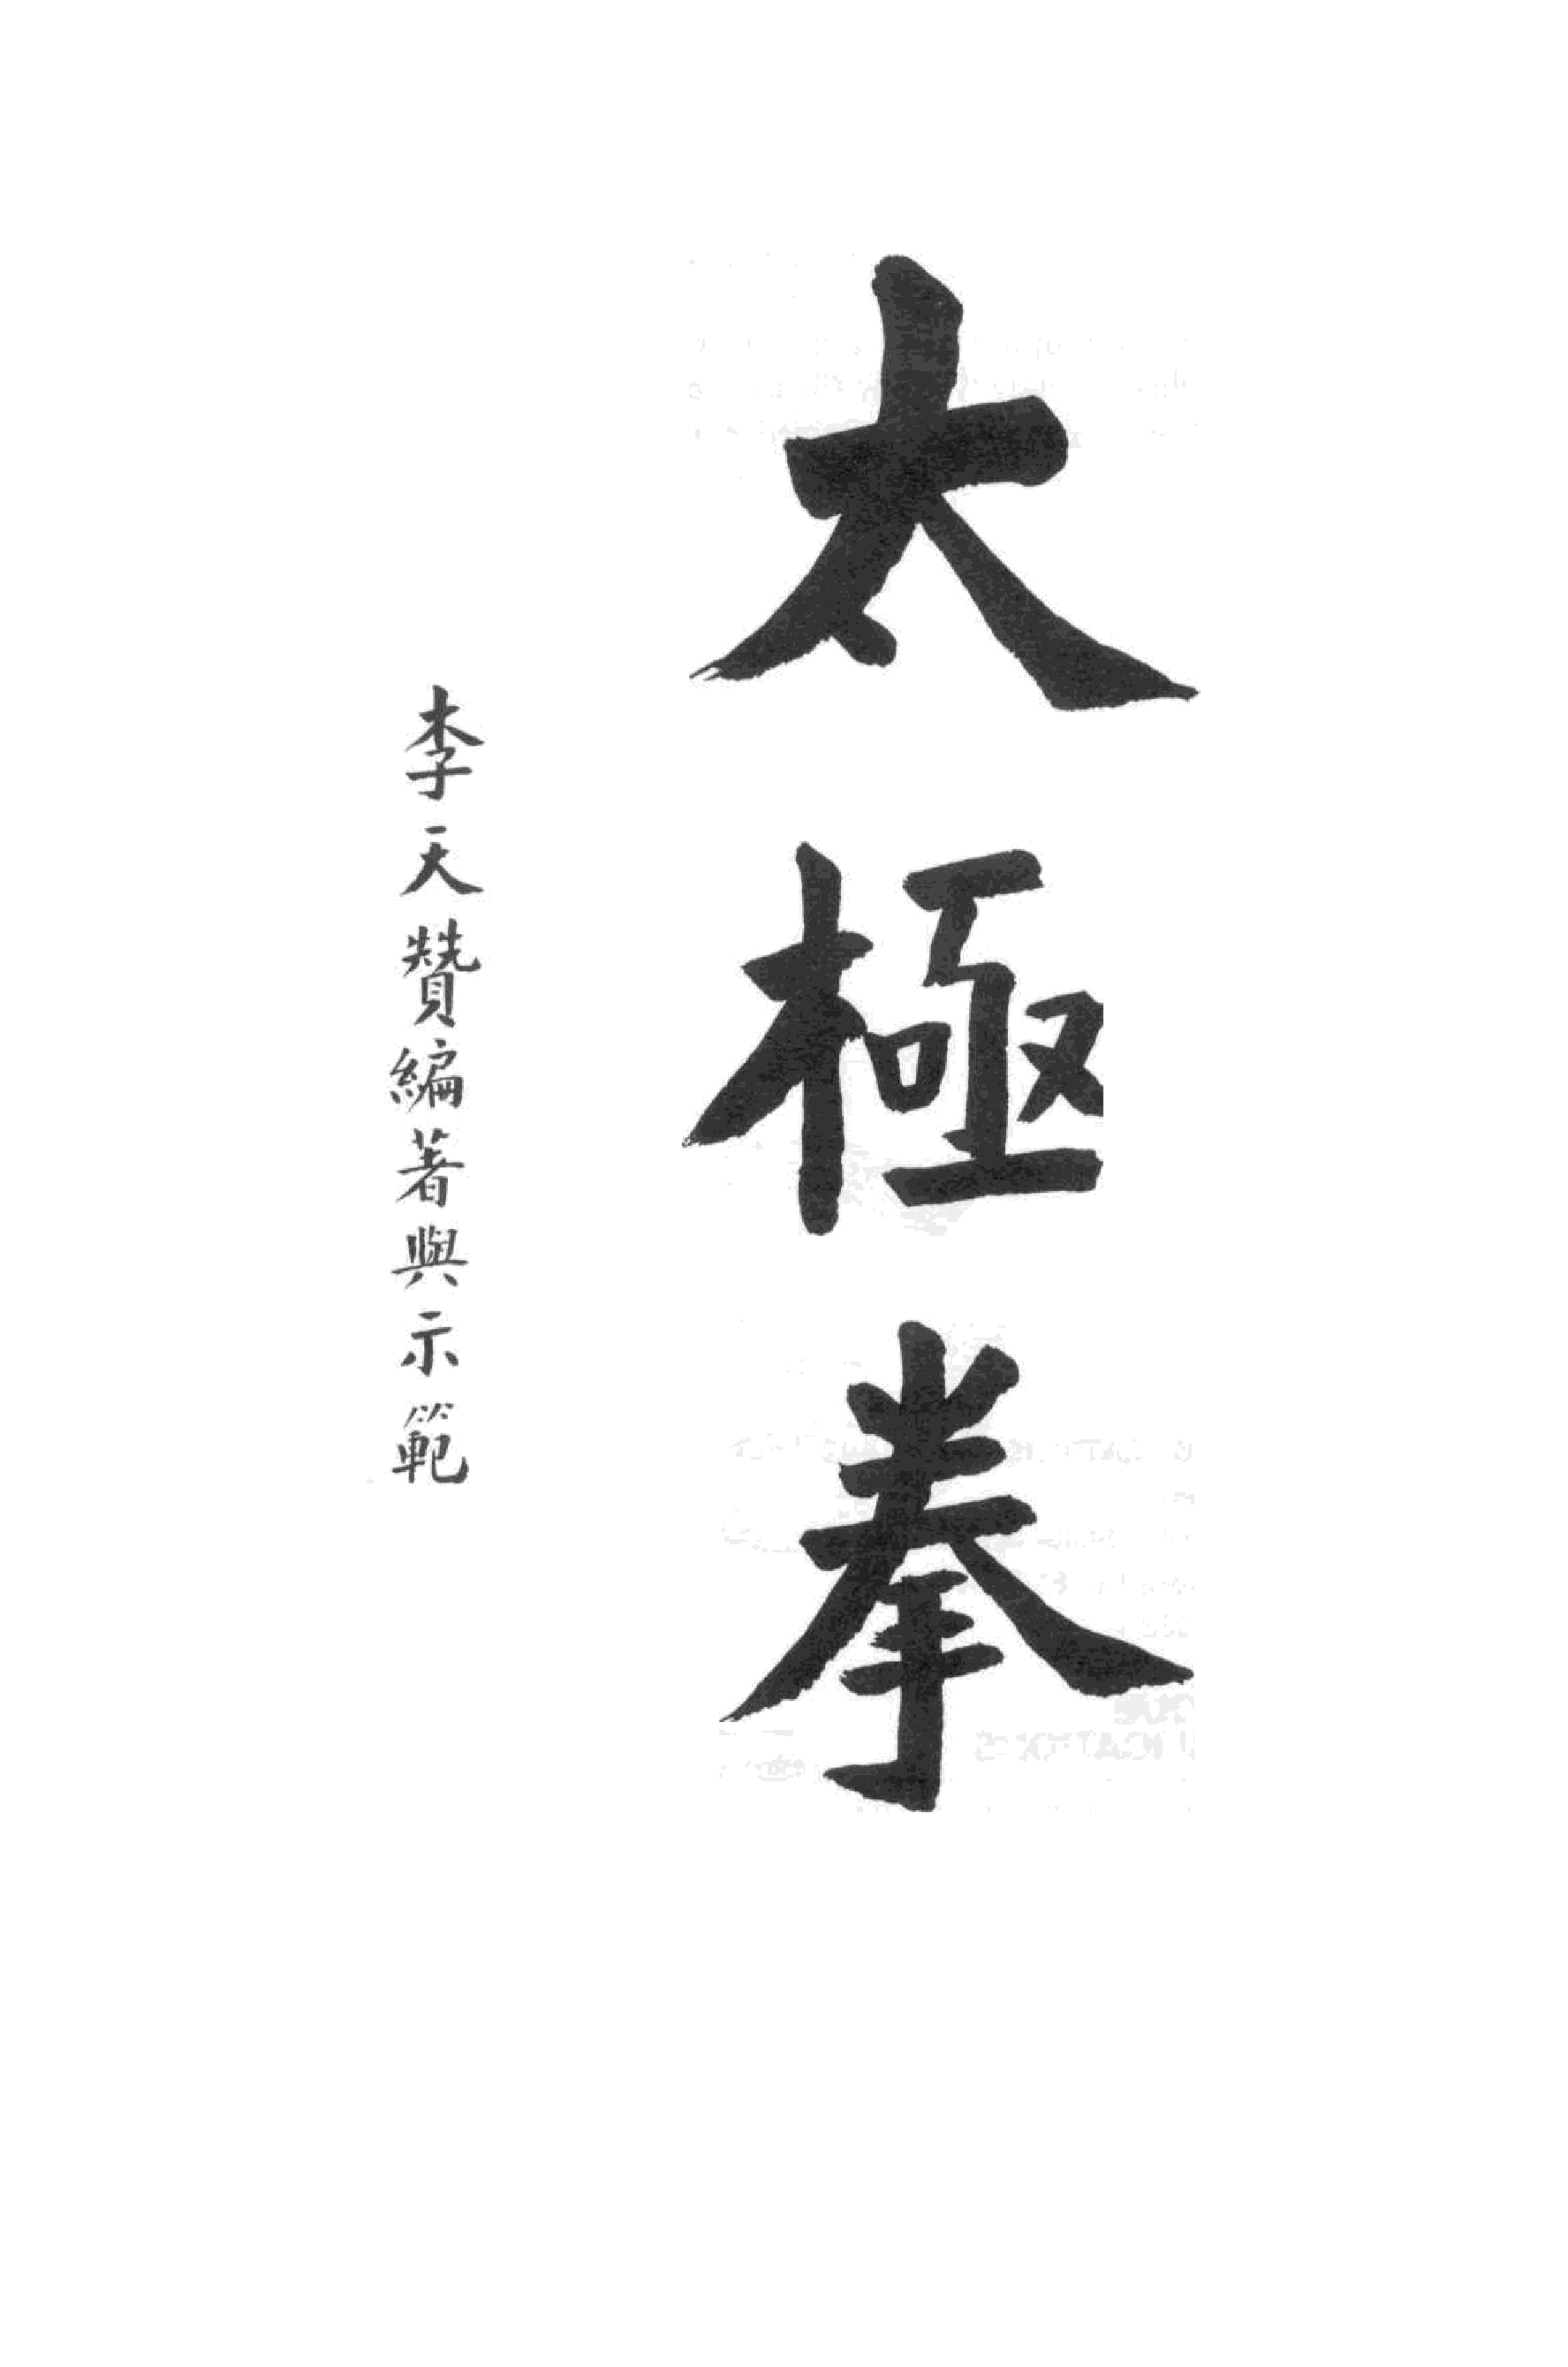 太極拳
李天贊編著與示範